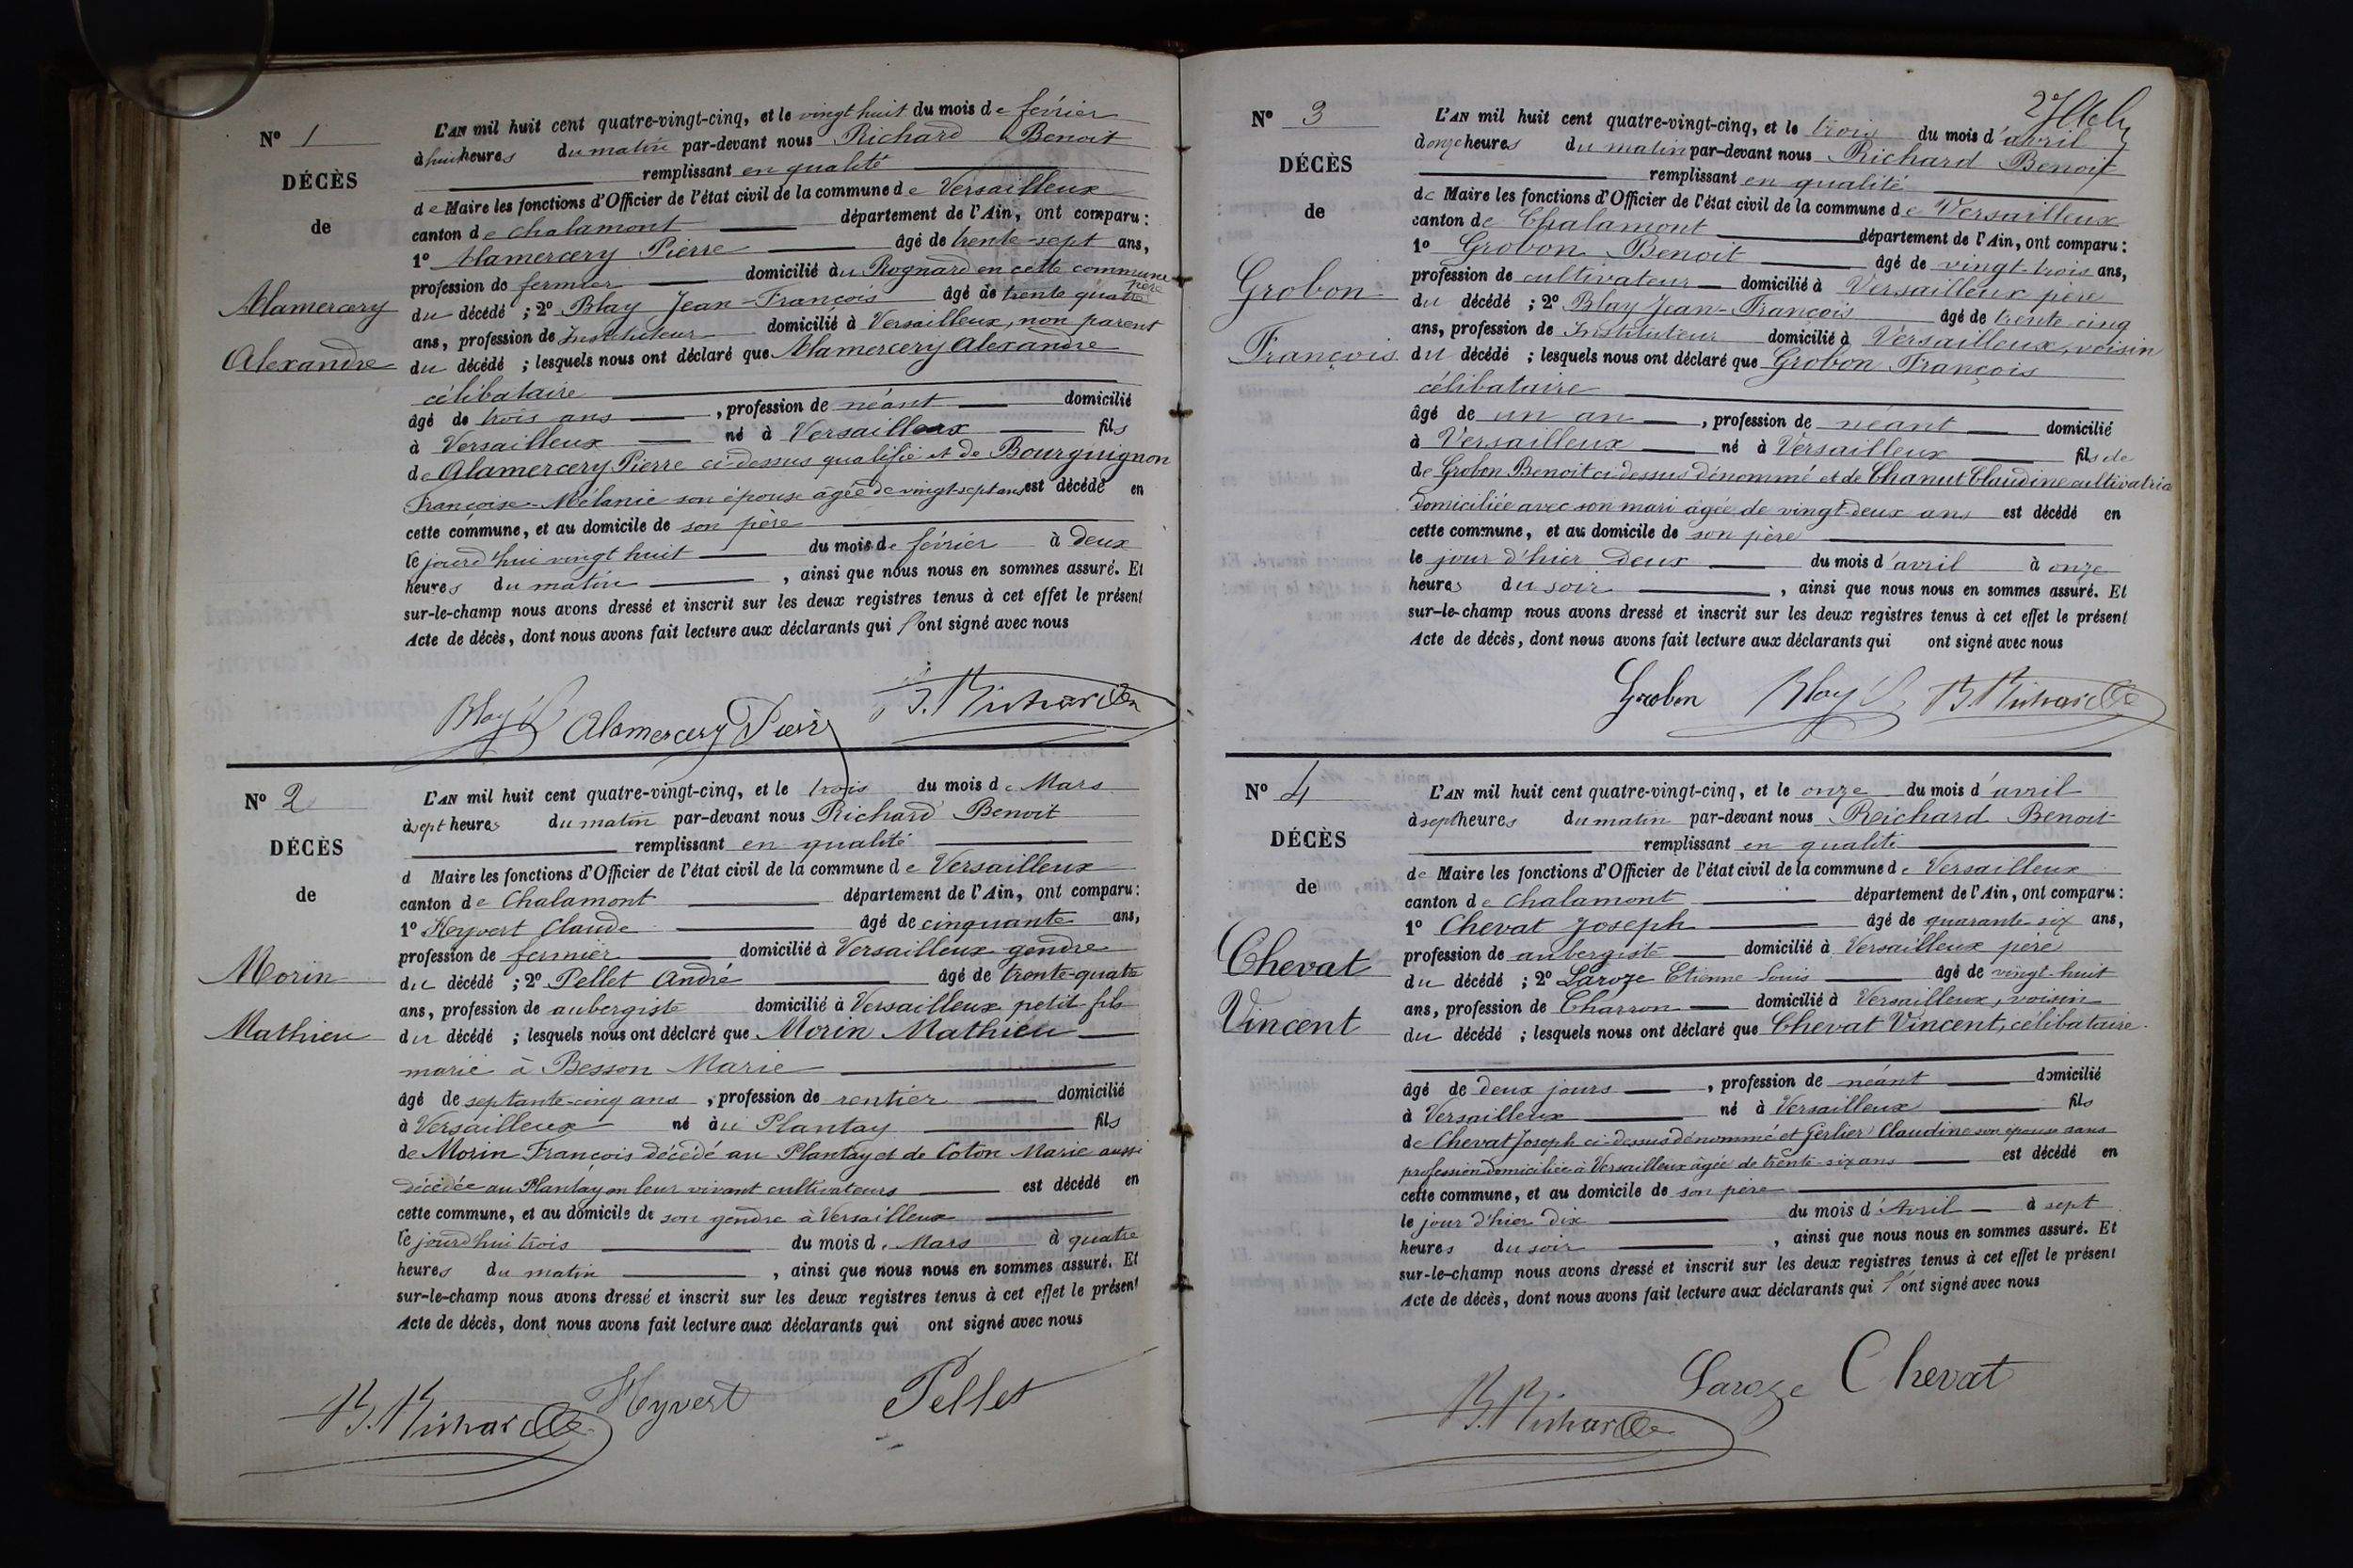 N° 1
DÉCÈS
de
Alamercery
Alexandre
L'AN mil huit cent quatre-vingt-cinq, et le vingt huit du mois de février
à huit heures du matin par-devant nous Richard Benoit
remplissant en qualité
de Maire les fonctions d'Officier de l'état civil de la commune de Versailleux
canton de Chalamont département de l'Ain, ont comparu :
1° Alamercery Pierre âgé de trente-sept ans,
profession de fermier domicilié au Rognard en cette commune père
du décédé ; 2° Blay Jean-François âgé de trente quatre
ans, profession de Instituteur domicilié à Versailleux, non parent
du décédé ; lesquels nous ont déclaré que Alamercery Alexandre
célibataire
âgé de trois ans, profession de néant domicilié
à Versailleux né à Versailleux fils
de Alamercery Pierre ci-dessus qualifié et de Bourguignon
Françoise-Mélanie son épouse âgée de vingt-sept ans est décédé en
cette commune, et au domicile de son père
le jourd'hui vingt huit du mois de février à deux
heures du matin, ainsi que nous nous en sommes assuré. Et
sur-le-champ nous avons dressé et inscrit sur les deux registres tenus à cet effet le présent
Acte de décès, dont nous avons fait lecture aux déclarants qui l'ont signé avec nous
Blay Alamercery Pierre B. Richard
N° 2
DÉCÈS
de
Morin
Mathieu
L'AN mil huit cent quatre-vingt-cinq, et le trois du mois de Mars
à sept heures du matin par-devant nous Richard Benoit
remplissant en qualité
d Maire les fonctions d'Officier de l'état civil de la commune de Versailleux
canton de Chalamont département de l'Ain, ont comparu :
1° Heyvert Claude âgé de cinquante ans,
profession de fermier domicilié à Versailleux gendre
du décédé ; 2° Pellet André âgé de trente-quatre
ans, profession de aubergiste domicilié à Versailleux petit fils
du décédé ; lesquels nous ont déclaré que Morin Mathieu
marié à Besson Marie
âgé de septante-cinq ans, profession de rentier domicilié
à Versailleux né au Plantay fils
de Morin François décédé au Plantay et de Coton Marie aussi
décédée au Plantay en leur vivant cultivateurs est décédé en
cette commune, et au domicile de son gendre à Versailleux
le jourd'hui trois du mois de Mars à quatre
heures du matin, ainsi que nous nous en sommes assuré. Et
sur-le-champ nous avons dressé et inscrit sur les deux registres tenus à cet effet le présent
Acte de décès, dont nous avons fait lecture aux déclarants qui ont signé avec nous
B. Richard Heyvert Pellet
N° 3
DÉCÈS
de
Grobon
François
L'AN mil huit cent quatre-vingt-cinq, et le trois du mois d'avril
à onze heures du matin par-devant nous Richard Benoit
remplissant en qualité
de Maire les fonctions d'Officier de l'état civil de la commune de Versailleux
canton de Chalamont département de l'Ain, ont comparu :
1° Grobon Benoit âgé de vingt-trois ans,
profession de cultivateur domicilié à Versailleux père
du décédé ; 2° Blay Jean-François âgé de trente cinq
ans, profession de Instituteur domicilié à Versailleux, voisin
du décédé ; lesquels nous ont déclaré que Grobon François
célibataire
âgé de un an, profession de néant domicilié
à Versailleux né à Versailleux fils de
de Grobon Benoit ci-dessus dénommé et de Chanut Claudine cultivatrice
domiciliée avec son mari âgée de vingt-deux ans est décédé en
cette commune, et au domicile de son père
le jour d'hier deux du mois d'avril à onze
heures du soir, ainsi que nous nous en sommes assuré. Et
sur-le-champ nous avons dressé et inscrit sur les deux registres tenus à cet effet le présent
Acte de décès, dont nous avons fait lecture aux déclarants qui ont signé avec nous
Grobon Blay B. Richard
N° 4
DÉCÈS
de
Chevat
Vincent
L'AN mil huit cent quatre-vingt-cinq, et le onze du mois d'avril
à sept heures du matin par-devant nous Reichard Benoit
remplissant en qualité
de Maire les fonctions d'Officier de l'état civil de la commune de Versailleux
canton de Chalamont département de l'Ain, ont comparu :
1° Chevat Joseph âgé de quarante-six ans,
profession de aubergiste domicilié à Versailleux père
du décédé ; 2° Laroze Etienne Louis âgé de vingt-huit
ans, profession de Charron domicilié à Versailleux, voisin
du décédé ; lesquels nous ont déclaré que Chevat Vincent, célibataire.
âgé de deux jours, profession de néant domicilié
à Versailleux né à Versailleux fils
de Chevat Joseph ci-dessus dénommé et Gerlier Claudine son épouse sans
profession domiciliée à Versailleux âgée de trente-six ans est décédé en
cette commune, et au domicile de son père
le jour d'hier dix du mois d'Avril à sept
heures du soir, ainsi que nous nous en sommes assuré. Et
sur-le-champ nous avons dressé et inscrit sur les deux registres tenus à cet effet le présent
Acte de décès, dont nous avons fait lecture aux déclarants qui l'ont signé avec nous
B. Richard Laroze Chevat